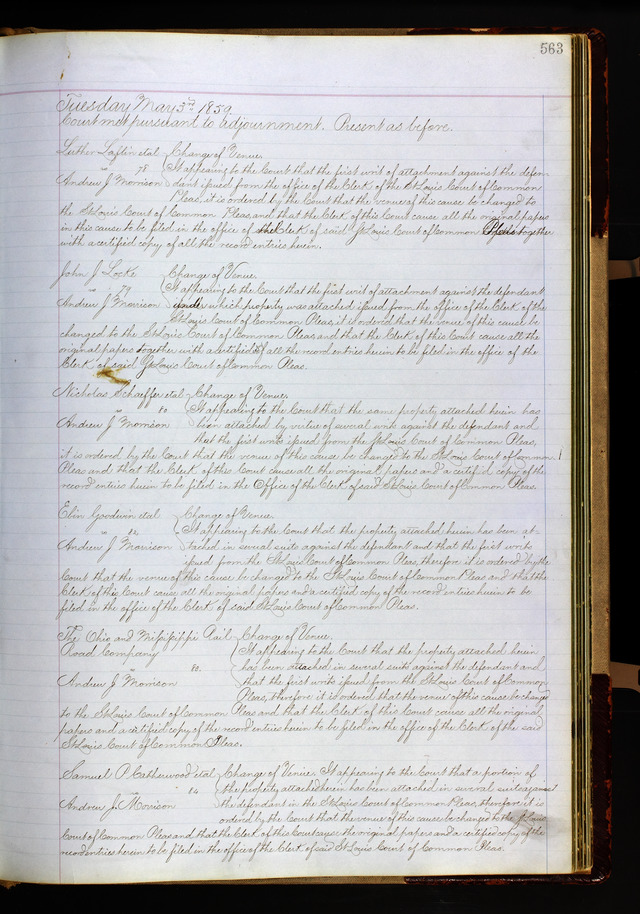 563
Tuesday May 3rd 1859
Court met pursuant to adjournment. Present as before.
Luther Laflin et al Change of Venue.
vs 78 It appearing to the Court that the first writ of attachment against the defen-
Andrew J Morrison dant issued from the office of the Clerk of the St Louis Court of Common
Pleas, it is ordered by the Court that the venue of this cause be changed to
the St Louis Court of Common Pleas, and that the Clerk of this Court cause all the original papers
in this cause to be filed in the office of the Clerk of said St Louis Court of Common Pleas together
with a certified copy of all the record entries herein.
John J Locke Change of Venue.
vs 79 It appearing to the Court that the first writ of attachment against the defendant
Andrew J Morrison under which property was attached issued from the office of the Clerk of the
St Louis Court of Common Pleas, it is ordered that the venue of this cause be
changed to the St Louis Court of Common Pleas and that the Clerk of this Court cause all the
original papers together with a certified of all the record entries herein to be filed in the office of the
Clerk of said St Louis Court of Common Pleas.
Nicholas Schaeffer et al Change of Venue.
vs 80 It appearing to the Court that the same property attached herein has
Andrew J Morrison been attached by virtue of several writs against the defendant and
that the first writs issued from the St Louis Court of Common Pleas,
it is ordered by the Court that the venue of this cause be changed to the St Louis Court of Common
Pleas and that the Clerk of this Court cause all the original papers and a certified copy of the
record entries herein to be filed in the Office of the Clerk of said St Louis Court of Common Pleas.
Eben Goodwin et al Change of Venue.
vs 82 It appearing to the Court that the property attached herein has been at-
Andrew J Morrison tached in several suits against the defendant and that the first writs
issued from the St Louis Court of Common Pleas, therefore it is ordered by the
Court that the venue of this cause be changed to the St Louis Court of Common Pleas and that the
Clerk of this Court cause all the original papers and a certified copy of the record entries herein to be
filed in the office of the Clerk of said St Louis Court of Common Pleas.
The Ohio and Mississippi Rail Change of Venue.
Road Company It appearing to the Court that the property attached herein
vs 83. has been attached in several suits against the defendant and
Andrew J Morrison that the first writs issued from the St Louis Court of Common
Pleas, therefore it is ordered that the venue of this cause be changed
to the St Louis Court of Common Pleas and that the Clerk of this Court cause all the original
papers and a certified copy of the record entries herein to be filed in the office of the Clerk of the said
St Louis Court of Common Pleas.
Samuel P Catherwood et al Change of Venue. It appearing to the Court that a portion of
vs 84 the property attached herein has been attached in several suits against
Andrew J. Morrison the defendant in the St Louis Court of Common Pleas, therefore it is
ordered by the Court that the venue of this cause be changed to the St Louis
Court of Common Pleas and that the Clerk of this Court cause the original papers and a certified copy of the
record entries herein to be filed in the office of the Clerk of said St Louis Court of Common Pleas.